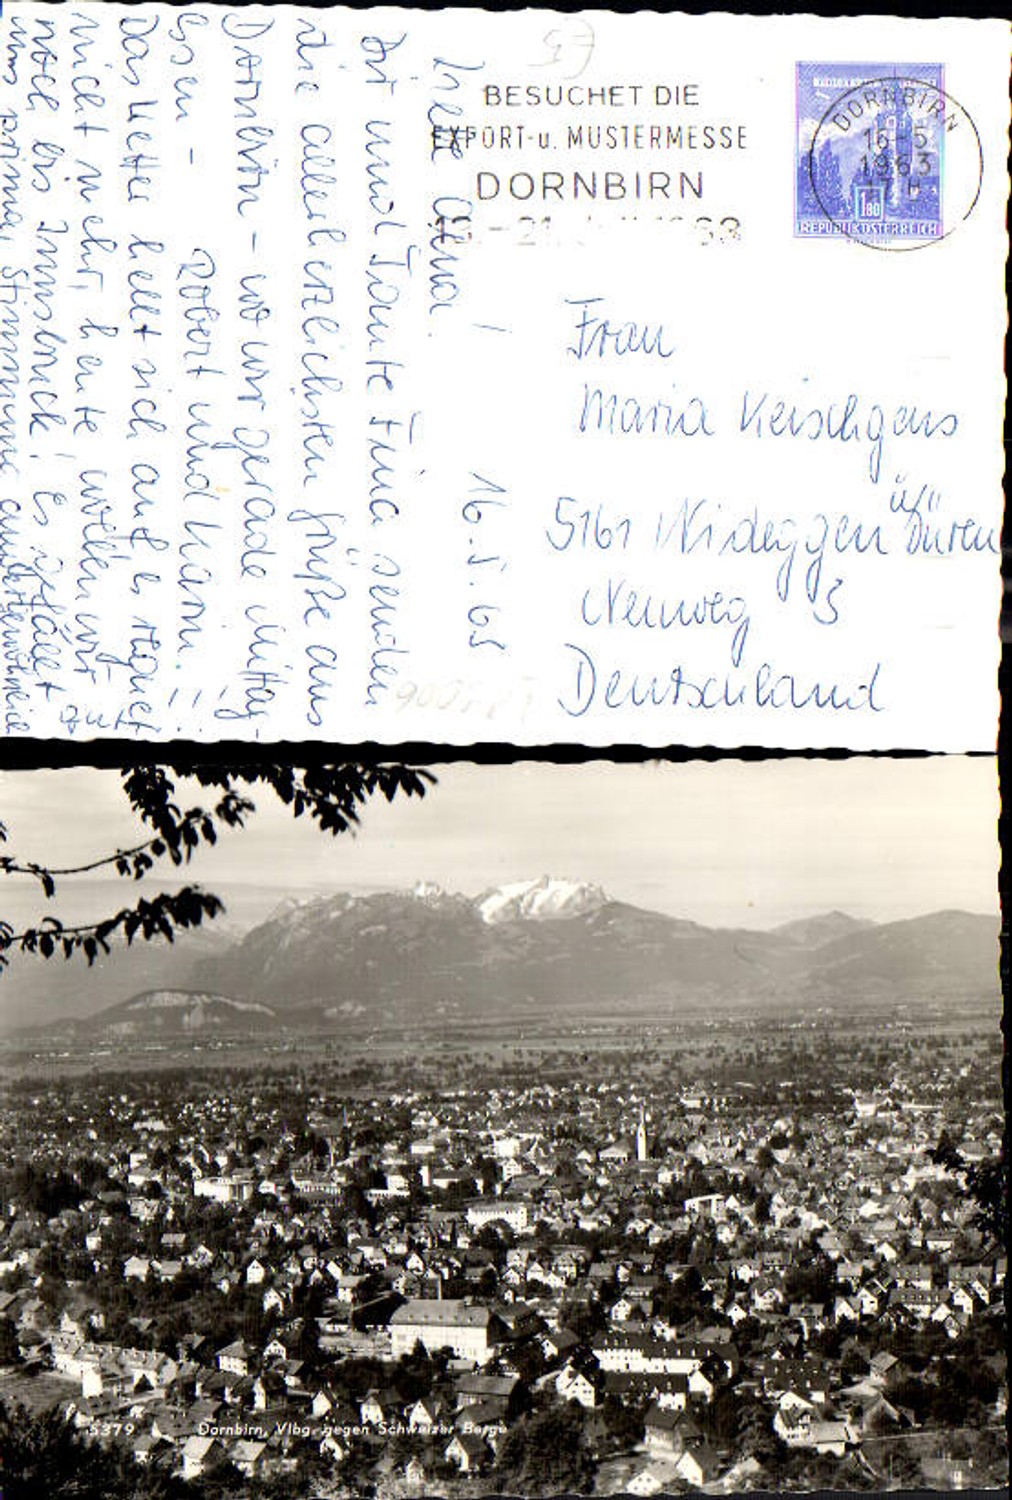 BESUCHET DIE
EXPORT-u. MUSTERMESSE
DORNBIRN
DORNBIRN
16-5
1963
17 H
1.80
REPUBLIK ÖSTERREICH
Frau
Maria Keischgens
5161 Nideggen ü/ Düren
Neuweg 3
Deutschland
16.5.63
Liebe Oma!
Dir und Tante Fina senden
die allerherzlichsten Grüße aus
Dornbirn - wo wir gerade Mittag-
essen - Robert und Karin.!!
Das Wetter hellt sich auf, es regnet
nicht mehr, heute wollen wir
noch bis Innsbruck! Es gefällt gut
uns prima Stimmung
5379 Dornbirn, Vlbg. gegen Schweizer Berge